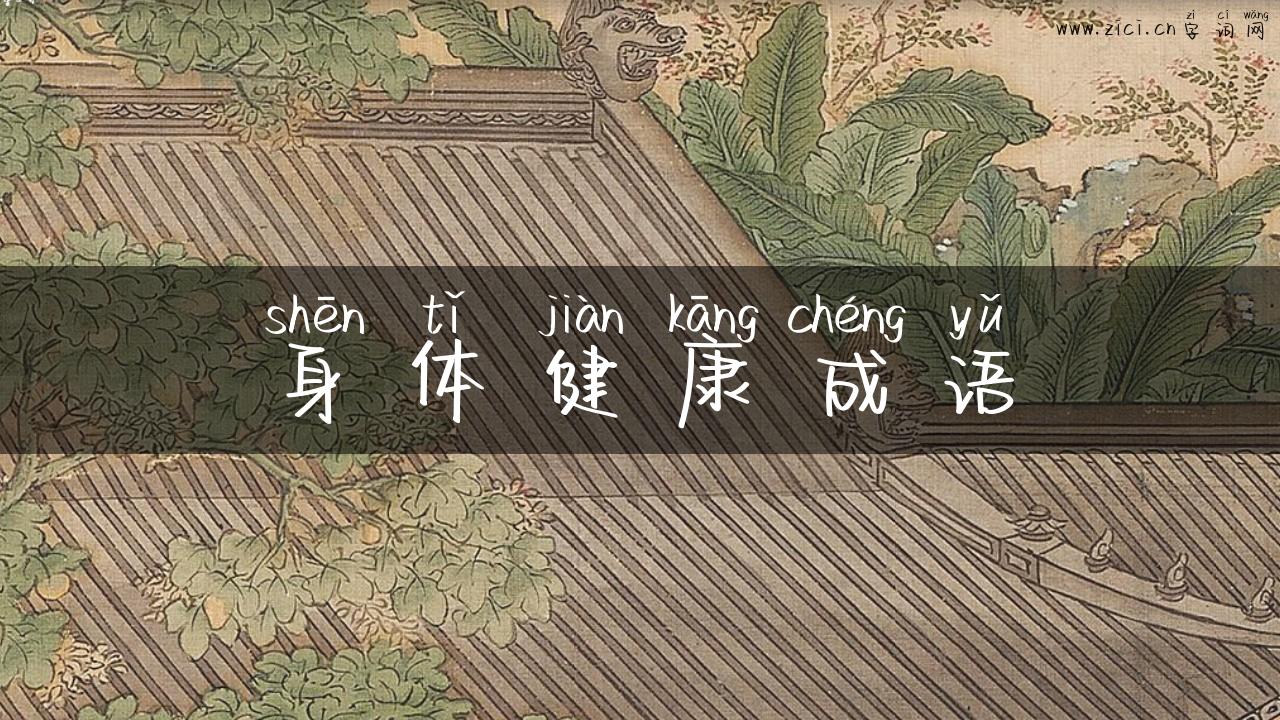 zì cí wǎng
www.zici.cn 字词网
shēn tǐ jiàn kāng chéng yǔ
身体健康成语